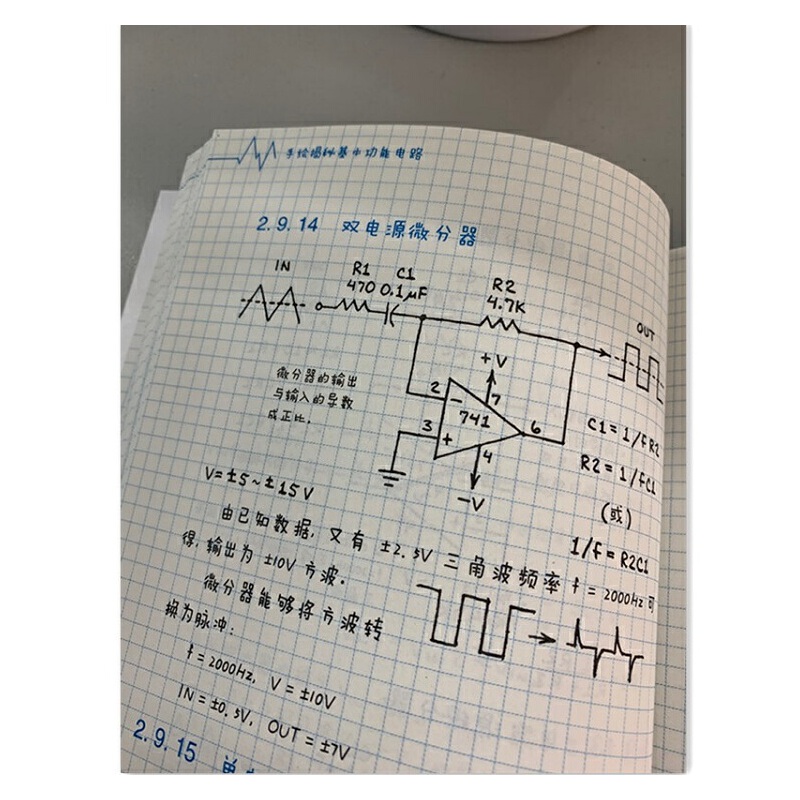 手绘揭秘基本功能电路
2.9.14 双电源微分器
IN
R1 C1
470 0.1μF
R2
4.7K
OUT
微分器的输出
与输入的导数
成正比.
+V
2
7
−
741
3
+
6
4
−V
C1 = 1/fR2
R2 = 1/fC1
(或)
1/f = R2C1
V = ±5 ~ ±15V
由已知数据, 又有 ±2.5V 三角波频率 f = 2000Hz 可
得, 输出为 ±10V 方波.
微分器能够将方波转
换为脉冲:
f = 2000Hz, V = ±10V
IN = ±0.5V, OUT = ±7V
2.9.15 单